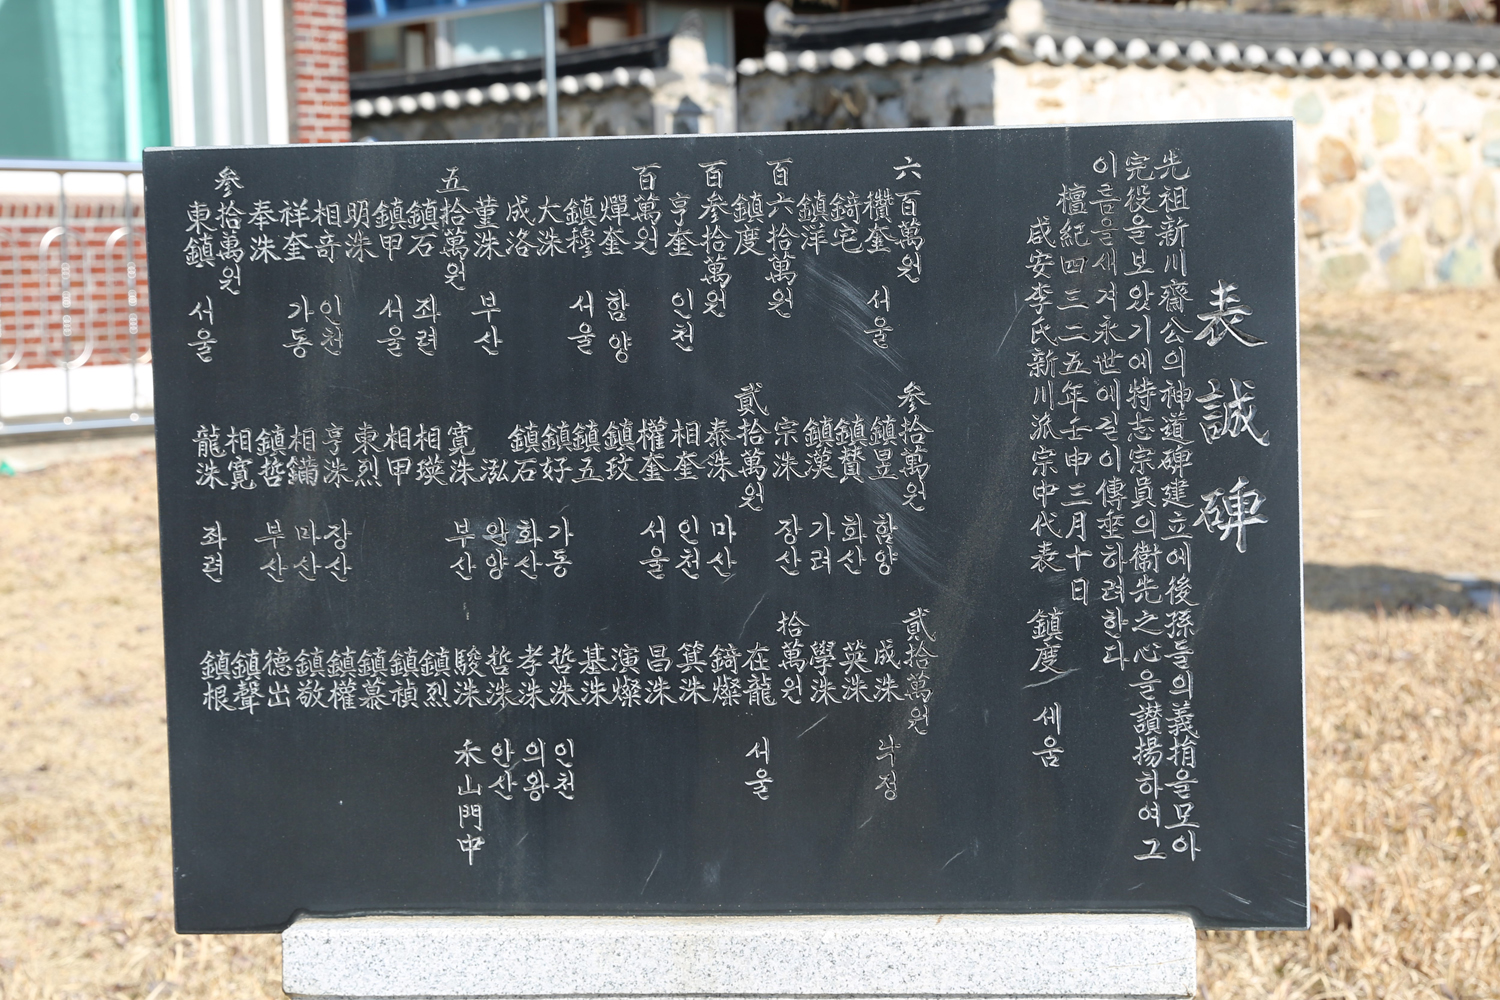 表誠碑
先祖新川齋公의神道碑建立에後孫들의義捐을모아
完役을보았기에特志宗員의衛先之心을讚揚하여그
이름을새겨永世에길이傳垂하려한다
檀紀四三二五年壬申三月十日
咸安李氏新川派宗中代表 鎭度 세움
六百萬원
欑奎 서울
錡宅
鎭洋
百六拾萬원
鎭度
百参拾萬원
亨奎 인천
百萬원
燀奎 함양
鎭穆 서울
大洙
成洛
董洙 부산
五拾萬원
鎭石 좌련
鎭甲 서울
明洙
相奇 인천
祥奎 가동
奉洙
参拾萬원
東鎭 서울
参拾萬원
鎭昱 함양
鎭賛 화산
鎭漢 가려
宗洙 장산
貳拾萬원
泰洙 마산
相奎 인천
權奎 서울
鎭玟
鎭五
鎭好 가동
鎭石 화산
泓 안양
寬洙 부산
相瑛
相甲
東烈
亨洙 장산
相鏞 마산
鎭哲 부산
相寬
龍洙 좌련
貳拾萬원
成洙 낙정
英洙
學洙
拾萬원
在龍 서울
錡燦
箕洙
昌洙
演燦
基洙
哲洙 인천
孝洙 의왕
哲洙 안산
駿洙 禾山門中
鎭烈
鎭禎
鎭慕
鎭權
鎭敬
德出
鎭聲
鎭根